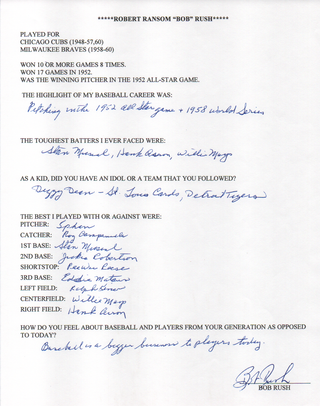 *****ROBERT RANSOM "BOB" RUSH*****
PLAYED FOR
CHICAGO CUBS (1948-57,60)
MILWAUKEE BRAVES (1958-60)
WON 10 OR MORE GAMES 8 TIMES.
WON 17 GAMES IN 1952.
WAS THE WINNING PITCHER IN THE 1952 ALL-STAR GAME.
THE HIGHLIGHT OF MY BASEBALL CAREER WAS:
Pitching in the 1952 All Star game + 1958 World Series
THE TOUGHEST BATTERS I EVER FACED WERE:
Stan Musial, Hank Aaron, Willie Mays
AS A KID, DID YOU HAVE AN IDOL OR A TEAM THAT YOU FOLLOWED?
Dizzy Dean - St Louis Cards, Detroit Tigers
THE BEST I PLAYED WITH OR AGAINST WERE:
PITCHER: Spahn
CATCHER: Roy Campanella
1ST BASE: Stan Musial
2ND BASE: Jackie Robertson
SHORTSTOP: Peewee Reese
3RD BASE: Eddie Mathews
LEFT FIELD: Ralph
CENTERFIELD: Willie Mays
RIGHT FIELD: Hank Aaron
HOW DO YOU FEEL ABOUT BASEBALL AND PLAYERS FROM YOUR GENERATION AS OPPOSED
TO TODAY?
Baseball is a bigger business to players today.
Bob Rush
BOB RUSH